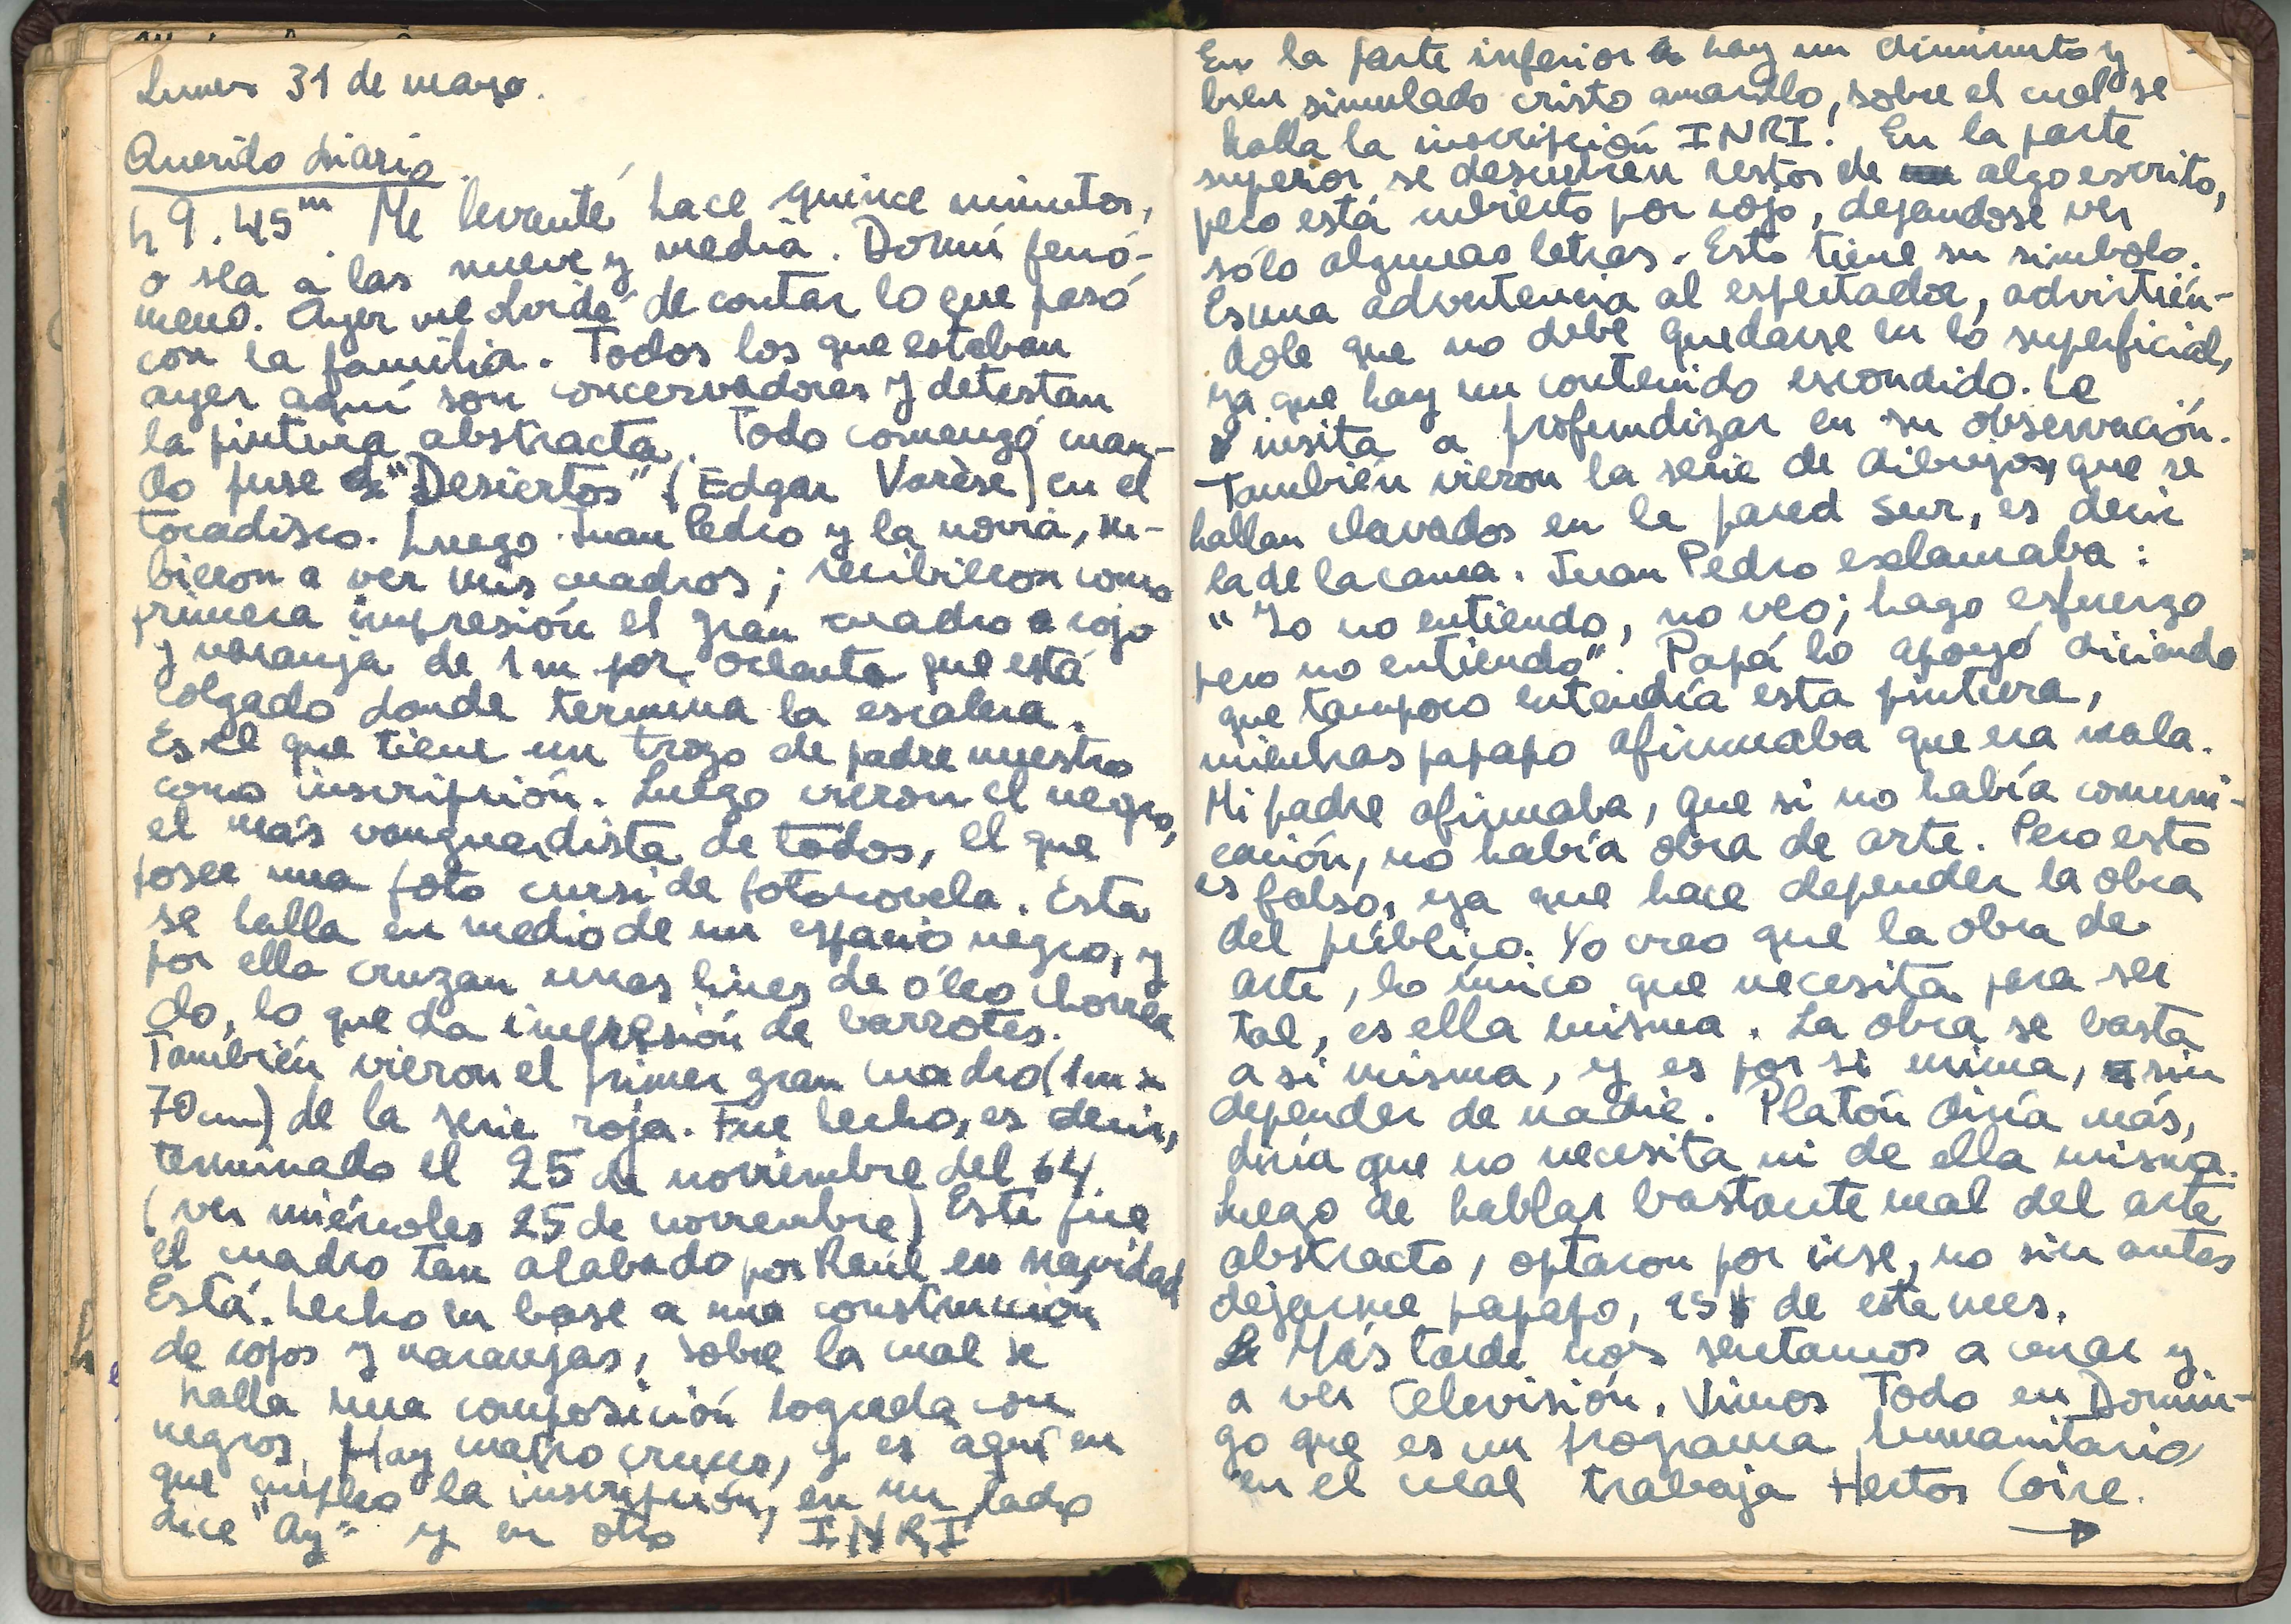 Lunes 31 de marzo.
Querido diario
h 9.45m Me levanté hace quince minutos,
o sea a las nueve y media. Dormí fenó-
meno. Ayer me olvidé de contar lo que pasó
con la familia. Todos los que estaban
ayer aquí son concervadores y detestan
la pintura abstracta. Todo comenzó cuan-
do puse "Desiertos" (Edgar Varèse) en el
tocadisco. Luego Juan Pedro y la novia, su-
bieron a ver mis cuadros; recibieron como
primera impresión el gran cuadro rojo
y naranja de 1m por ochenta que está
colgado donde termina la escalera.
Es el que tiene un trozo de padre nuestro
como inscripción. Luego vieron el negro,
el más vanguardista de todos, el que
posee una foto cursi de fotonovela. Esta
se halla en medio de un espacio negro, y
por ella cruzan unas lineas de óleo chorrea
do, lo que da impresión de barrotes.
También vieron el primer gran cuadro (1m x
70cm) de la serie roja. Fue hecho, es decir,
terminado el 25 de noviembre del 64
(ver miércoles 25 de noviembre) Este fue
el cuadro tan alabado por Raúl en navidad
Está hecho en base a una construcción
de rojos y naranjas, sobre la cual se
halla una composición lograda con
negros. Hay cuatro cruces, y es aquí en
que empleo la inscripción, en un lado
dice "Ay" y en otro INRI
En la parte inferior hay un diminuto y
bien simulado cristo amarillo, sobre el cual se
halla la inscripción INRI. En la parte
superior se descubren restos de algo escrito,
pero está cubierto por rojo, dejandose ver
sólo algunas letras. Esto tiene su simbolo.
Es una advertencia al espectador, advirtién-
dole que no debe quedarse en lo superficial,
ya que hay un contenido escondido. Le
insita a profundizar en su observación.
También vieron la serie de dibujos, que se
hallan clavados en la pared sur, es decir
la de la cama. Juan Pedro exclamaba:
"Yo no entiendo, no veo; hago esfuerzo
pero no entiendo". Papá lo apoyó diciendo
que tampoco entendía esta pintura,
mientras papapo afirmaba que era mala.
Mi padre afirmaba, que si no había comuni-
cación, no había obra de arte. Pero esto
es falso, ya que hace depender la obra
del público. Yo creo que la obra de
arte, lo único que necesita para ser
tal, es ella misma. La obra se basta
a si misma, y es por si mima, sin
depender de nadie. Platón diría más,
diría que no necesita ni de ella misma.
Luego de hablar bastante mal del arte
abstracto, optaron por irse, no sin antes
dejarme papapo, 15 $ de este mes.
Más tarde nos sentamos a cenar y
a ver televisión. Vimos Todo en Domin-
go que es un programa humanitario
en el cual trabaja Hector Coire.